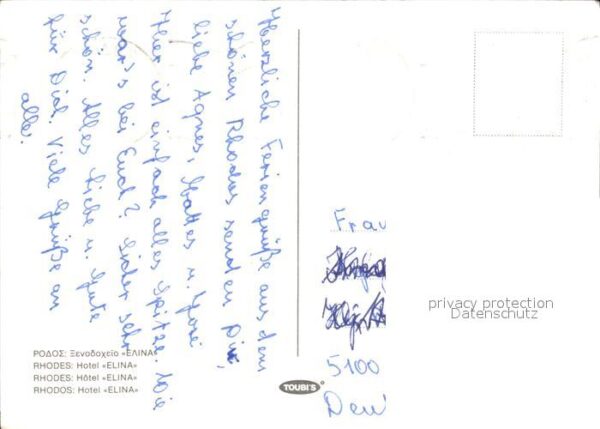 Herzliche Feriengrüße aus dem
schönen Rhodos senden Dir,
liebe Agnes, Mattes u. José
Hier ist einfach alles Spitze. Wie
war's bei Euch? Sicher sehr
schön. Alles Liebe u. Gute
für Dich. Viele Grüße an
alle.
ΡΟΔΟΣ: Ξενοδοχείο «ΕΛΙΝΑ»
RHODES: Hotel «ELINA»
RHODES: Hôtel «ELINA»
RHODOS: Hotel «ELINA»
TOUBI'S
Frau
privacy protection
Datenschutz
5100